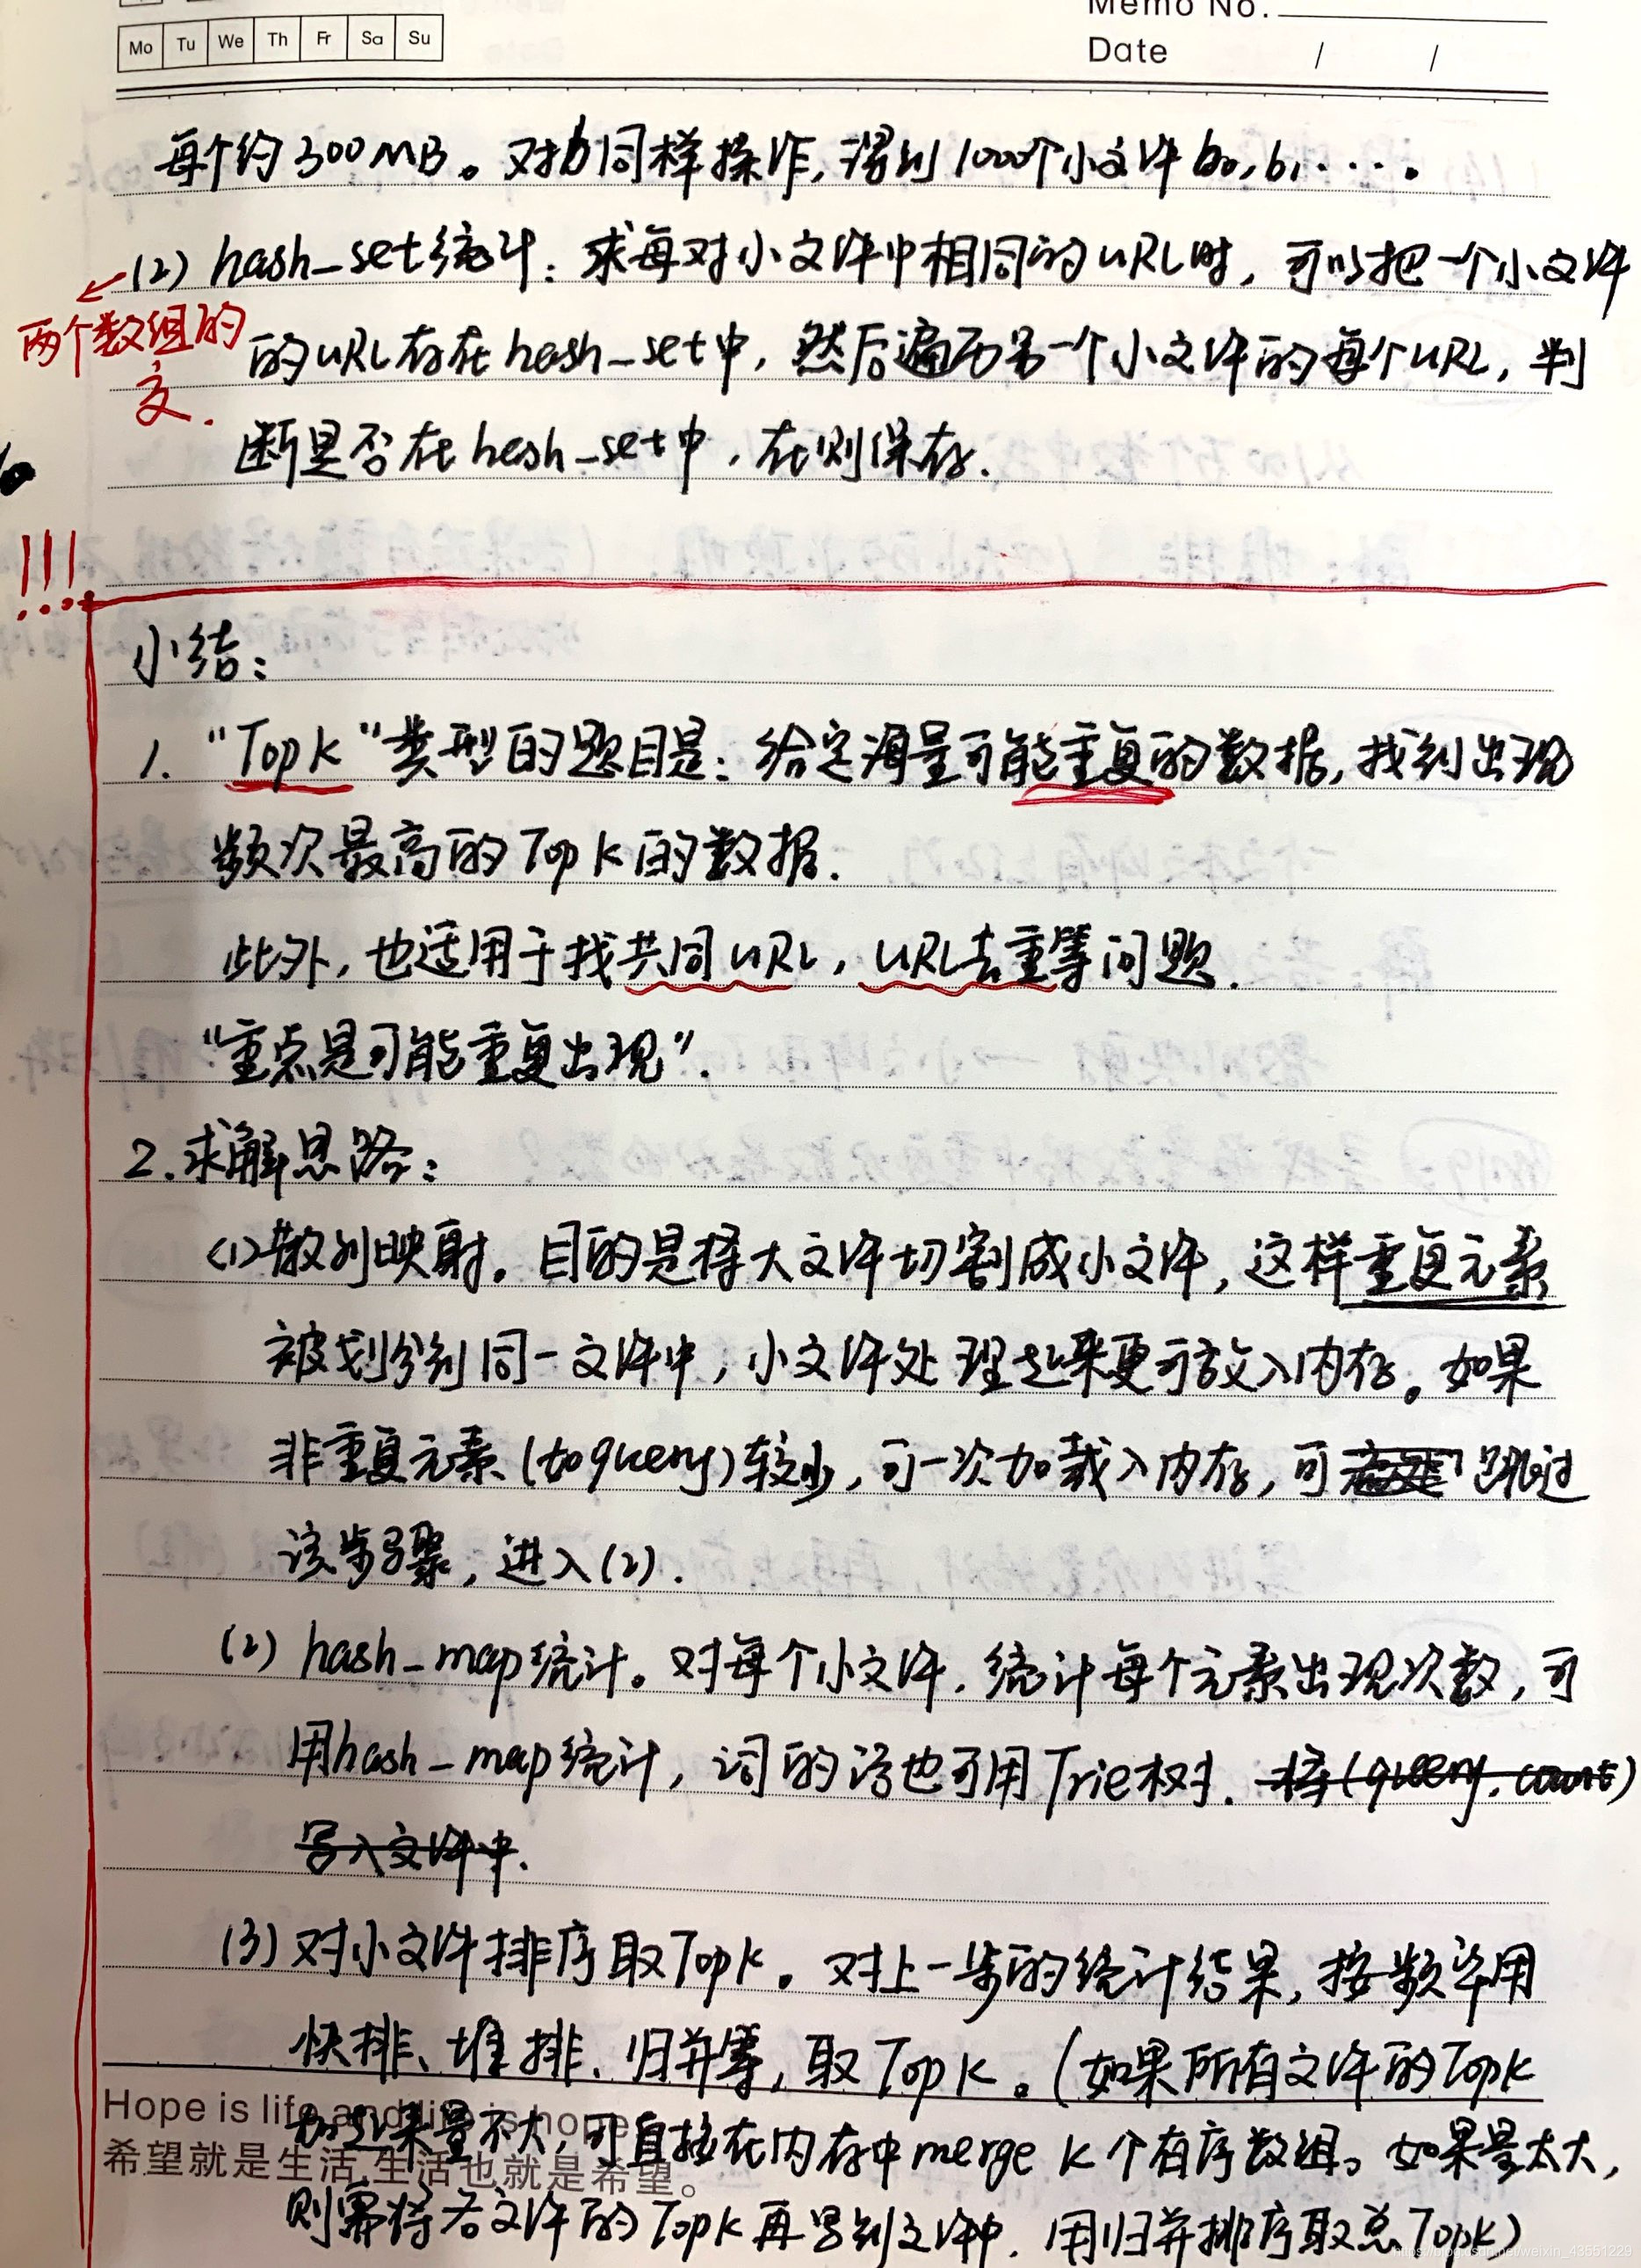 Memo No.
Mo Tu We Th Fr Sa Su
Date / /
每个约300MB。对b同样操作,得到1000个小文件b0,b1....。
(2) hash_set统计:求每对小文件中相同的URL时,可以把一个小文件
两个数组的
交.
的URL存在hash_set中,然后遍历另一个小文件的每个URL,判
断是否在hash_set中,在则保存.
!!!
小结:
1. "Top K"类型的题目是:给定海量可能重复的数据,找到出现
频次最高的Top K的数据.
此外,也适用于找共同URL,URL去重等问题.
"重点是可能重复出现".
2.求解思路:
(1)散列映射。目的是将大文件切割成小文件,这样重复元素
被划分到同一文件中,小文件处理起来更可放入内存。如果
非重复元素(to query)较少,可一次加载入内存,可跳过
该步骤,进入(2).
(2) hash_map统计。对每个小文件,统计每个元素出现次数,可
用hash_map统计,词的话也可用Trie树.将(query,count)
写入文件中.
(3)对小文件排序取TopK。对上一步的统计结果,按频率用
快排、堆排、归并等,取TopK。(如果所有文件的TopK
Hope is life and life is hope
加起来量不大,可直接在内存中merge K个有序数组。如果量太大,
希望就是生活,生活也就是希望。
则需将各文件的TopK再写到文件中,用归并排序取总TopK)
https://blog.csdn.net/weixin_43551229